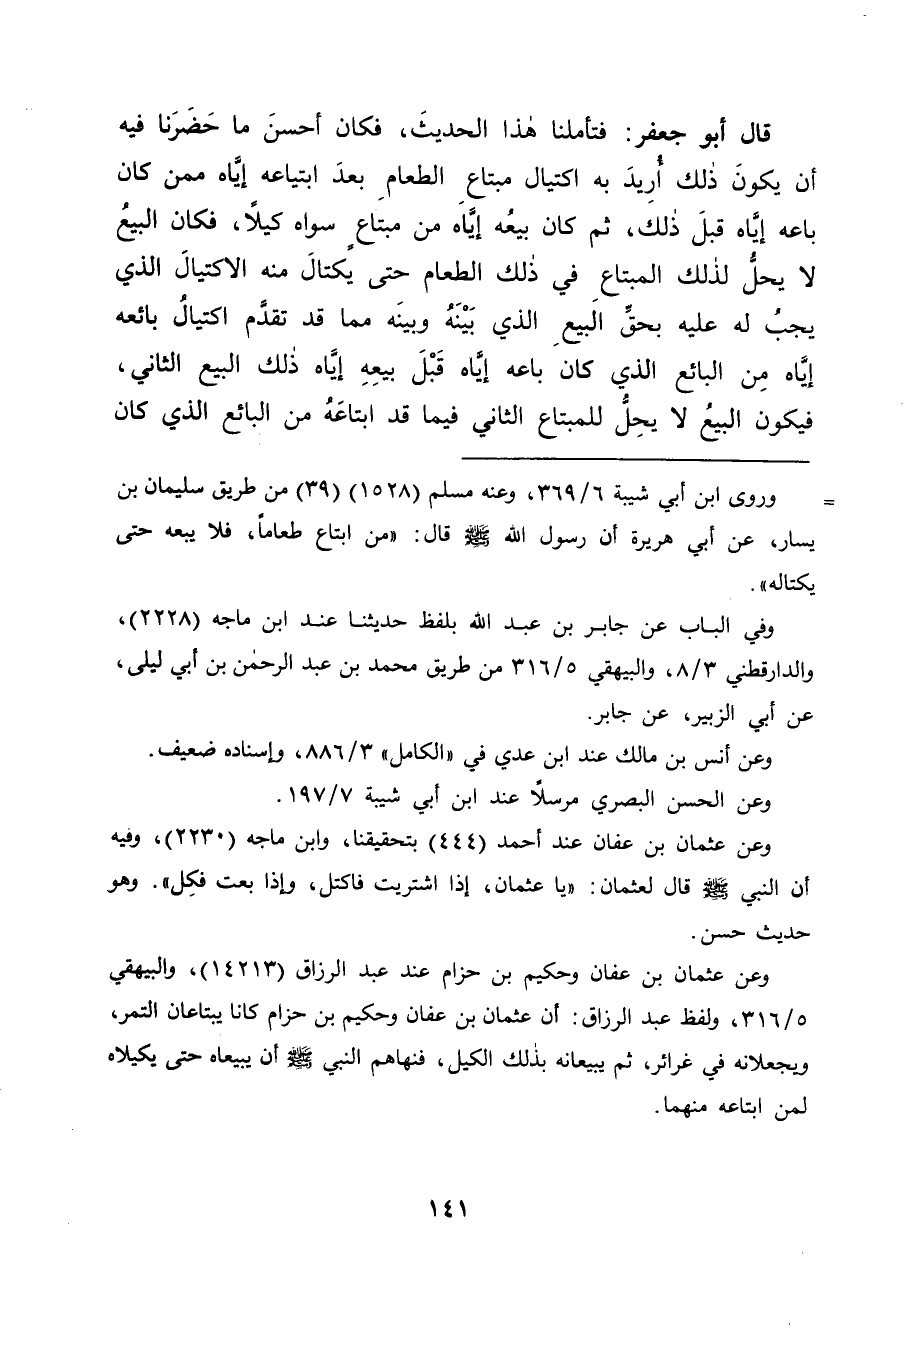 قال أبو جعفر: فتأملنا هٰذا الحديثَ، فكان أحسنَ ما حَضَرَنا فيه
أن يكونَ ذٰلك أُرِيدَ به اكتيال مبتاعِ الطعامِ بعدَ ابتياعه إيَّاه ممن كان
باعه إيَّاه قبلَ ذٰلك، ثم كان بيعُه إيَّاه من مبتاعٍ سواه كيلًا، فكان البيعُ
لا يحلُّ لذٰلك المبتاعِ في ذٰلك الطعام حتى يكتالَ منه الاكتيالَ الذي
يجبُ له عليه بحقِّ البيعِ الذي بَيْنَهُ وبينَه مما قد تقدَّم اكتيالُ بائعه
إيَّاه مِن البائع الذي كان باعه إيَّاه قَبْلَ بيعِهِ إيَّاه ذٰلك البيع الثاني،
فيكون البيعُ لا يحِلُّ للمبتاع الثاني فيما قد ابتاعَهُ من البائع الذي كان
= وروى ابن أبي شيبة ٣٦٩/٦، وعنه مسلم (١٥٢٨) (٣٩) من طريق سليمان بن
يسار، عن أبي هريرة أن رسول الله ﷺ قال: «من ابتاع طعاماً، فلا يبعه حتى
يكتاله».
وفي الباب عن جابر بن عبد الله بلفظ حديثنا عند ابن ماجه (٢٢٢٨)،
والدارقطني ٨/٣، والبيهقي ٣١٦/٥ من طريق محمد بن عبد الرحمٰن بن أبي ليلى،
عن أبي الزبير، عن جابر.
وعن أنس بن مالك عند ابن عدي في «الكامل» ٨٨٦/٣، وإسناده ضعيف.
وعن الحسن البصري مرسلًا عند ابن أبي شيبة ١٩٧/٧.
وعن عثمان بن عفان عند أحمد (٤٤٤) بتحقيقنا، وابن ماجه (٢٢٣٠)، وفيه
أن النبي ﷺ قال لعثمان: «يا عثمان، إذا اشتريت فاكتل، وإذا بعت فكِل». وهو
حديث حسن.
وعن عثمان بن عفان وحكيم بن حزام عند عبد الرزاق (١٤٢١٣)، والبيهقي
٣١٦/٥، ولفظ عبد الرزاق: أن عثمان بن عفان وحكيم بن حزام كانا يبتاعان التمر،
ويجعلانه في غرائر، ثم يبيعانه بذٰلك الكيل، فنهاهم النبي ﷺ أن يبيعاه حتى يكيلاه
لمن ابتاعه منهما.
١٤١